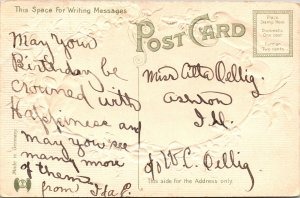 This Space For Writing Messages
POST CARD
Place
Stamp Here
Domestic
One cent
Foreign
Two cents
May Your
Birthday be
crowned with
Happiness and
may you see
many more
of them
from Ida P.
Miss Etta Dellig
Ashton
Ill.
c/o W. C. Dellig
This side for the Address only.